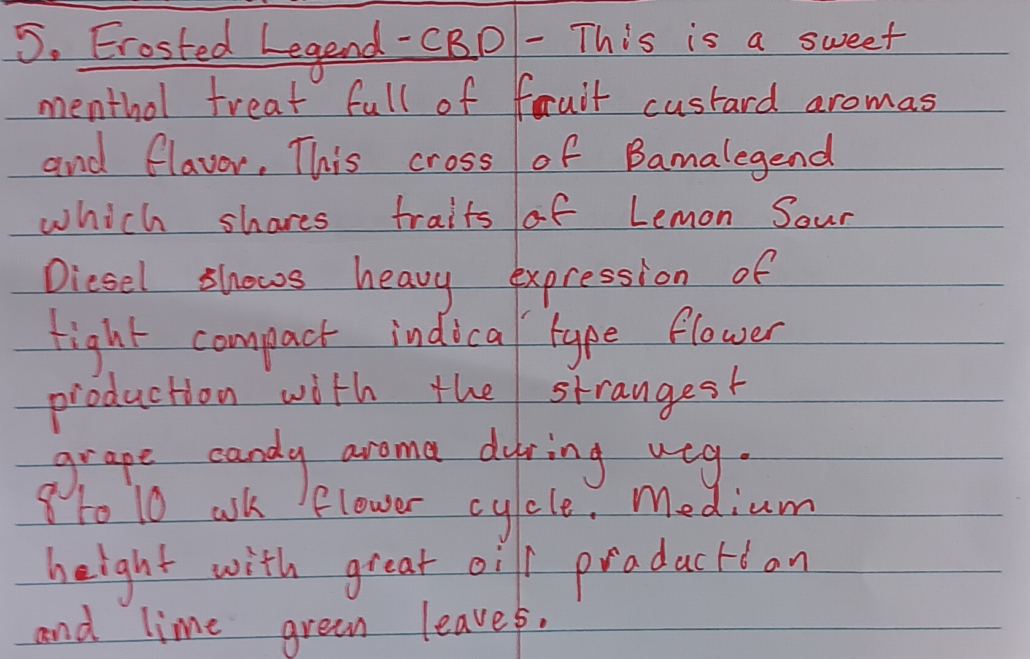 5. Erosted Legend - CBD - This is a sweet
menthol treat full of fruit custard aromas
and flavor. This cross of Bamalegend
which shares traits of Lemon Sour
Diesel shows heavy expression of
tight compact indica type flower
production with the strangest
grape candy aroma during veg.
8 to 10 wk flower cycle. Medium
height with great oil production
and lime green leaves.